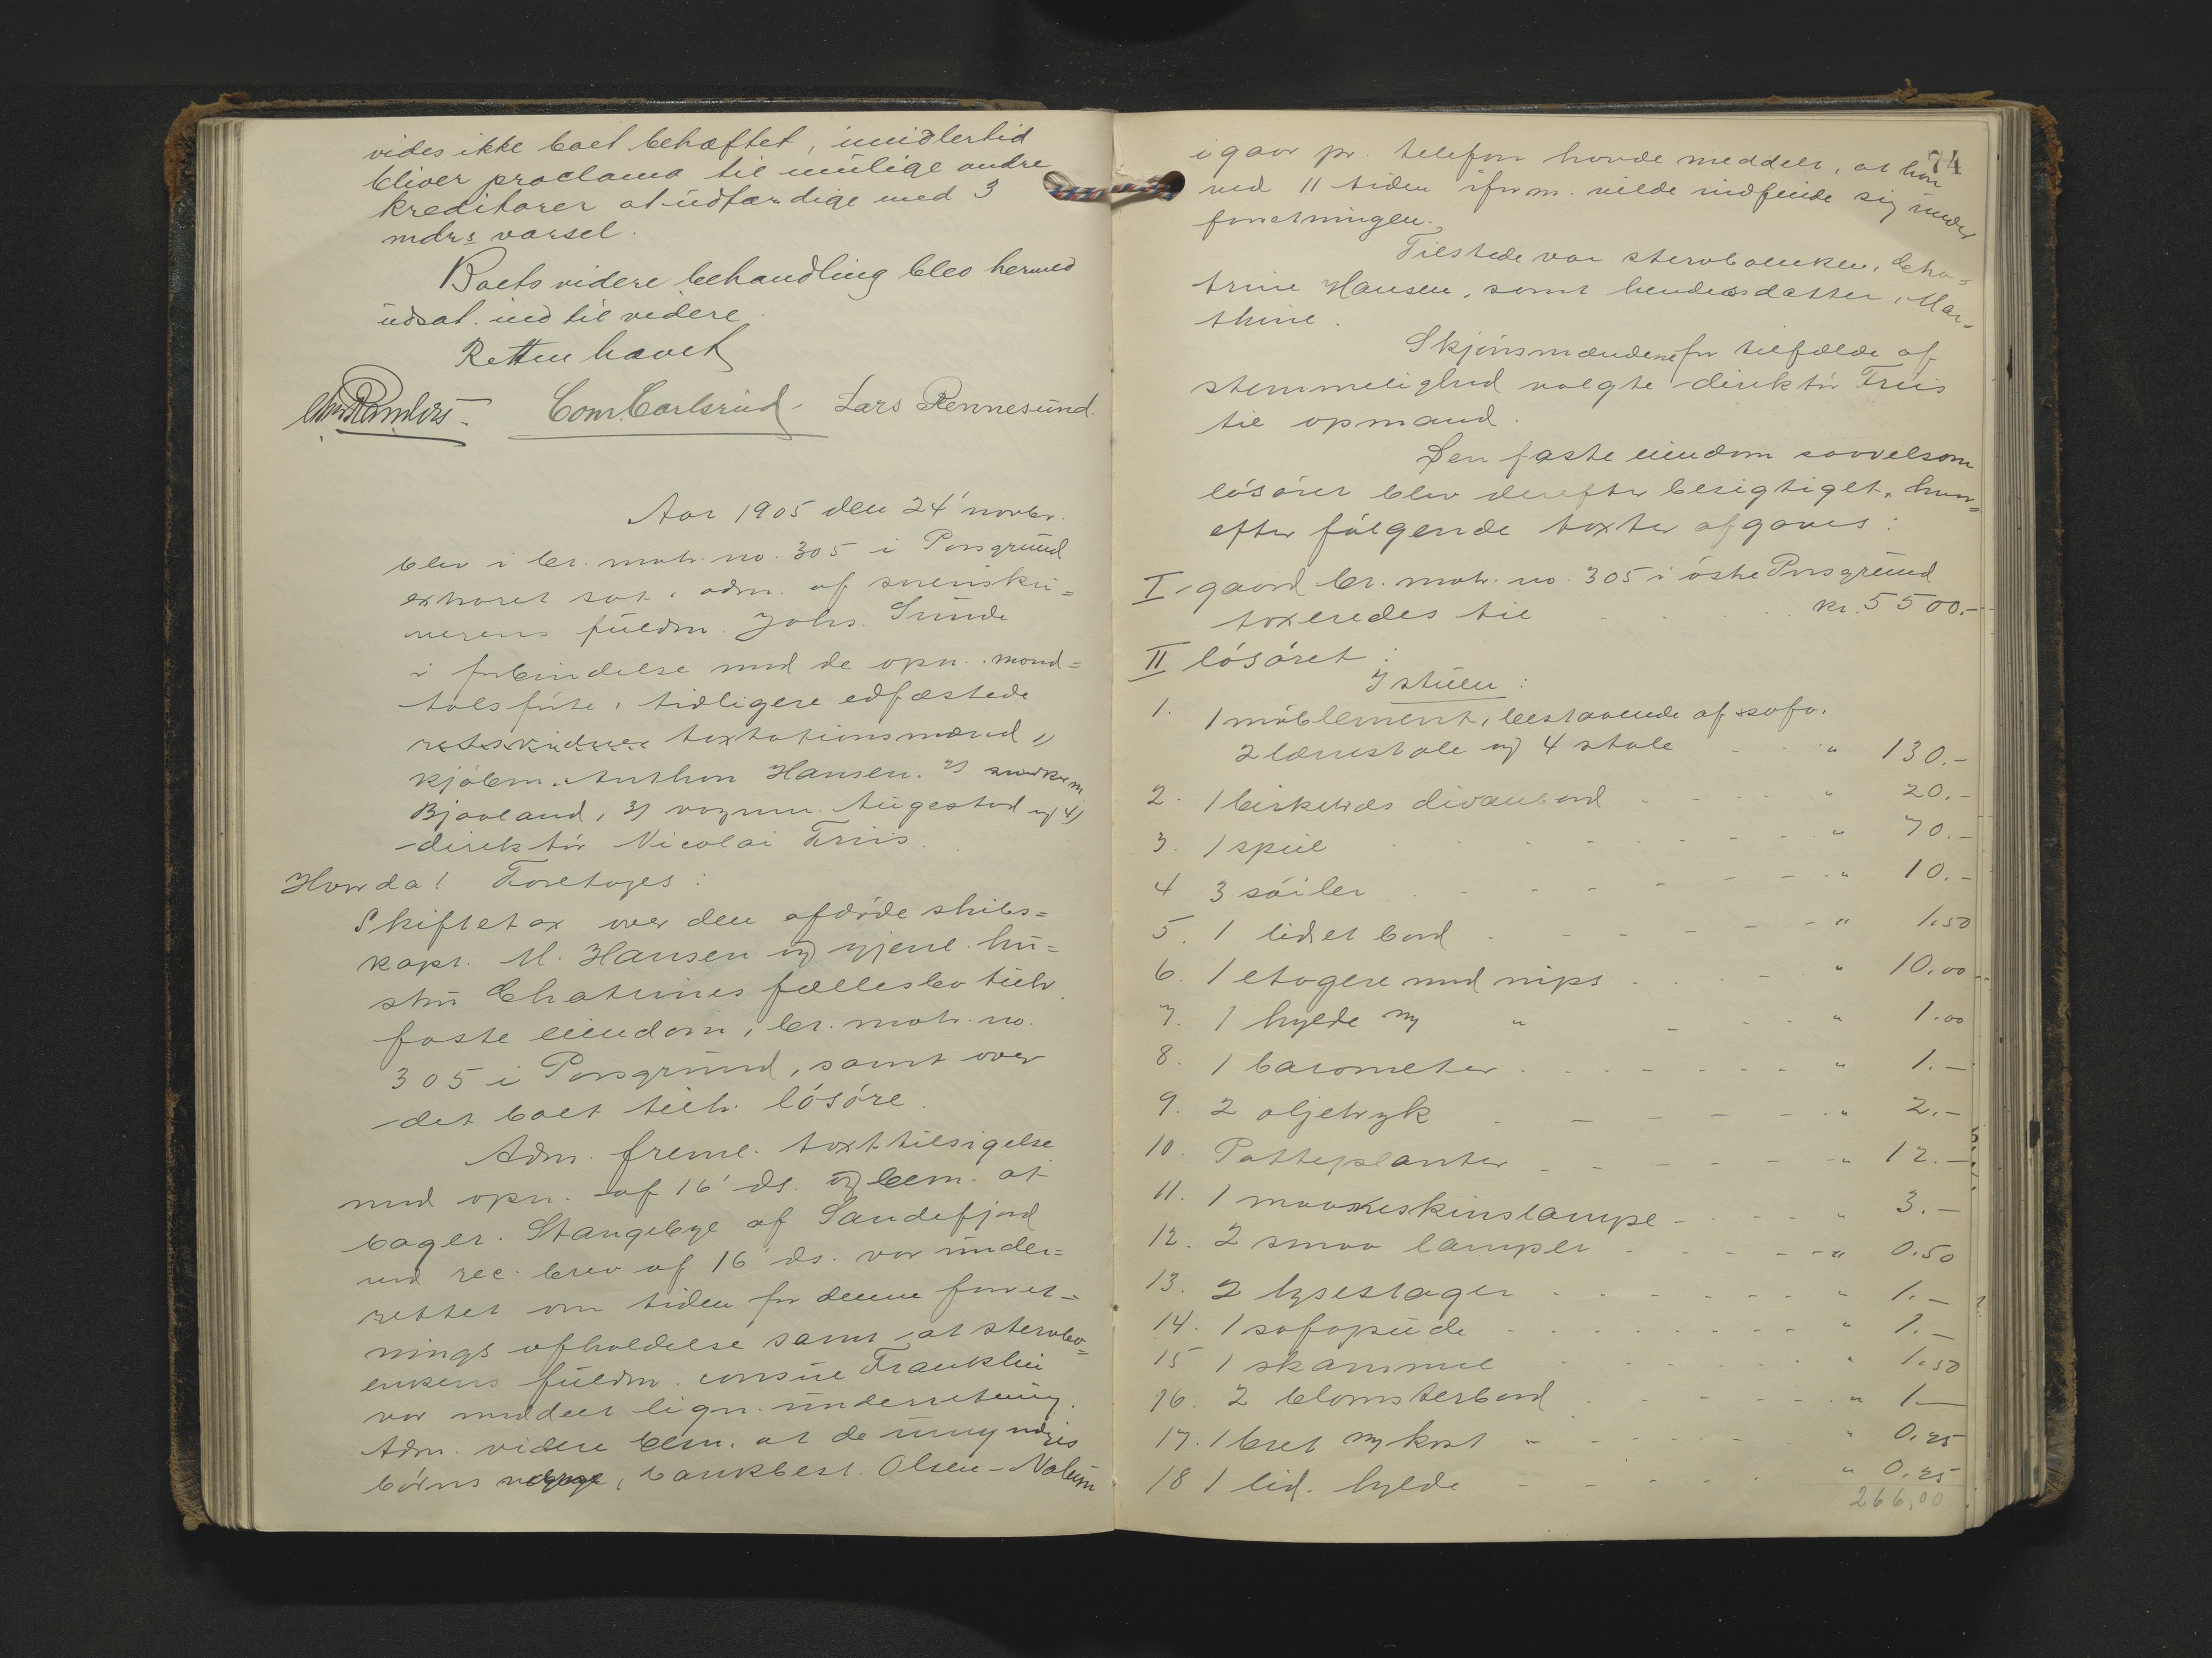 vides ikke boet behæftet, imidlertid
bliver proclama til mulige andre
kreditorer at udfærdige med 3
mdrs varsel.
Boets videre behandling blev hermed
udsat indtil videre.
Retten hævet
Com. Carlsrud. Lars Rennesund.
Aar 1905 den 24' novbr.
blev i br. matr. no. 305 i Porsgrund
extraret sat, adm. af sorenskri=
verens fuldm. Johs. Sunde
i forbindelse med de opn. mand=
talsførte, tidligere edfæstede
taxtationsmænd 1)
kjøbm. Anthon Hansen. 2) snedkerm
Bjaaland, 3) vognm. Augestad og 4)
direktør Nicolai Friis.
Hvorda! Foretoges:
Skiftetax over den afdøde skibs=
kapt. M. Hansen og gjenl. hu=
stru Chatrines fællesbo tilh.
faste eiendom, br. matr. no.
305 i Porsgrund, samt over
det boet tilh. løsøre.
Adm. freml. taxttilsigelse
med opn. af 16' ds. og bem. at
bager. Stangebye af Sandefjord
ved rec. brev af 16' ds. var under=
rettet om tiden for denne forret=
nings afholdelse samt at stervbo=
enkens fuldm. consul Franklin
var meddelt lign. underretning.
Adm. videre bem. at de umyndiges
børns verge, bankbest. Olsen-Nalum
74
igaar pr. telefon havde meddelt, at han
ved 11 tiden iform. vilde indfinde sig under
forretningen.
Tilstede var stervboenken, Cha=
trine Hansen, samt hendes datter, Mar=
thine.
Skjønsmændene for tilfælde af
stemmelighed valgte direktør Friis
til opmand.
Den faste eiendom saavelsom
løsøret blev derefter besigtiget, hvor=
efter følgende taxter afgaves:
I gaard br. matr. no. 305 i østre Porsgrund
taxeredes til kr. 5500.-
II løsøret:
I stuen:
1. 1 møblement, bestaaende af sofa,
2 lænestole og 4 stole " 130.-
2. 1 birketræs divanbord " 20.-
3. 1 speil " 70.-
4 3 søiler " 10.-
5. 1 lidet bord " 1.50
6. 1 etagere med nips " 10.00
7. 1 hylde m " " 1.00
8. 1 barometer " 1.-
9. 2 oljetryk " 2.-
10. Potteplanter " 12.-
11. 1 maaneskinslampe " 3.-
12. 2 smaa lamper " 0.50
13. 2 lysestager " 1.-
14. 1 sofapude " 1.-
15 1 skammel " 1.50
16. 2 blomsterbord " 1.-
17. 1 bret og kost " 0.25
18 1 lid. hylde " 0.25
266,00